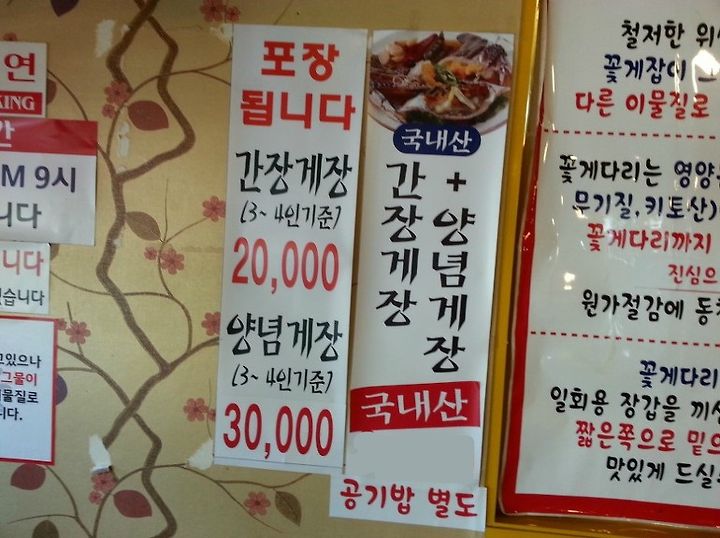 연
KING
간
M 9시
니다
니다
있습니다
고있으나
그물이
물질로
니다.
포장
됩니다
간장게장
(3~4인기준)
20,000
양념게장
(3~4인기준)
30,000
국내산
간장게장
+양념게장
국내산
공기밥 별도
철저한 위
꽃게잡이
다른 이물질로
꽃게다리는 영양
무기질,키토산)
꽃게다리까지
진심으
원가절감에 동
꽃게다리
일회용 장갑을 끼
짧은쪽으로 밑으
맛있게 드실